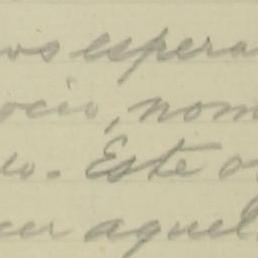 os espera
ocio, nom
do. Este o
cer aquel